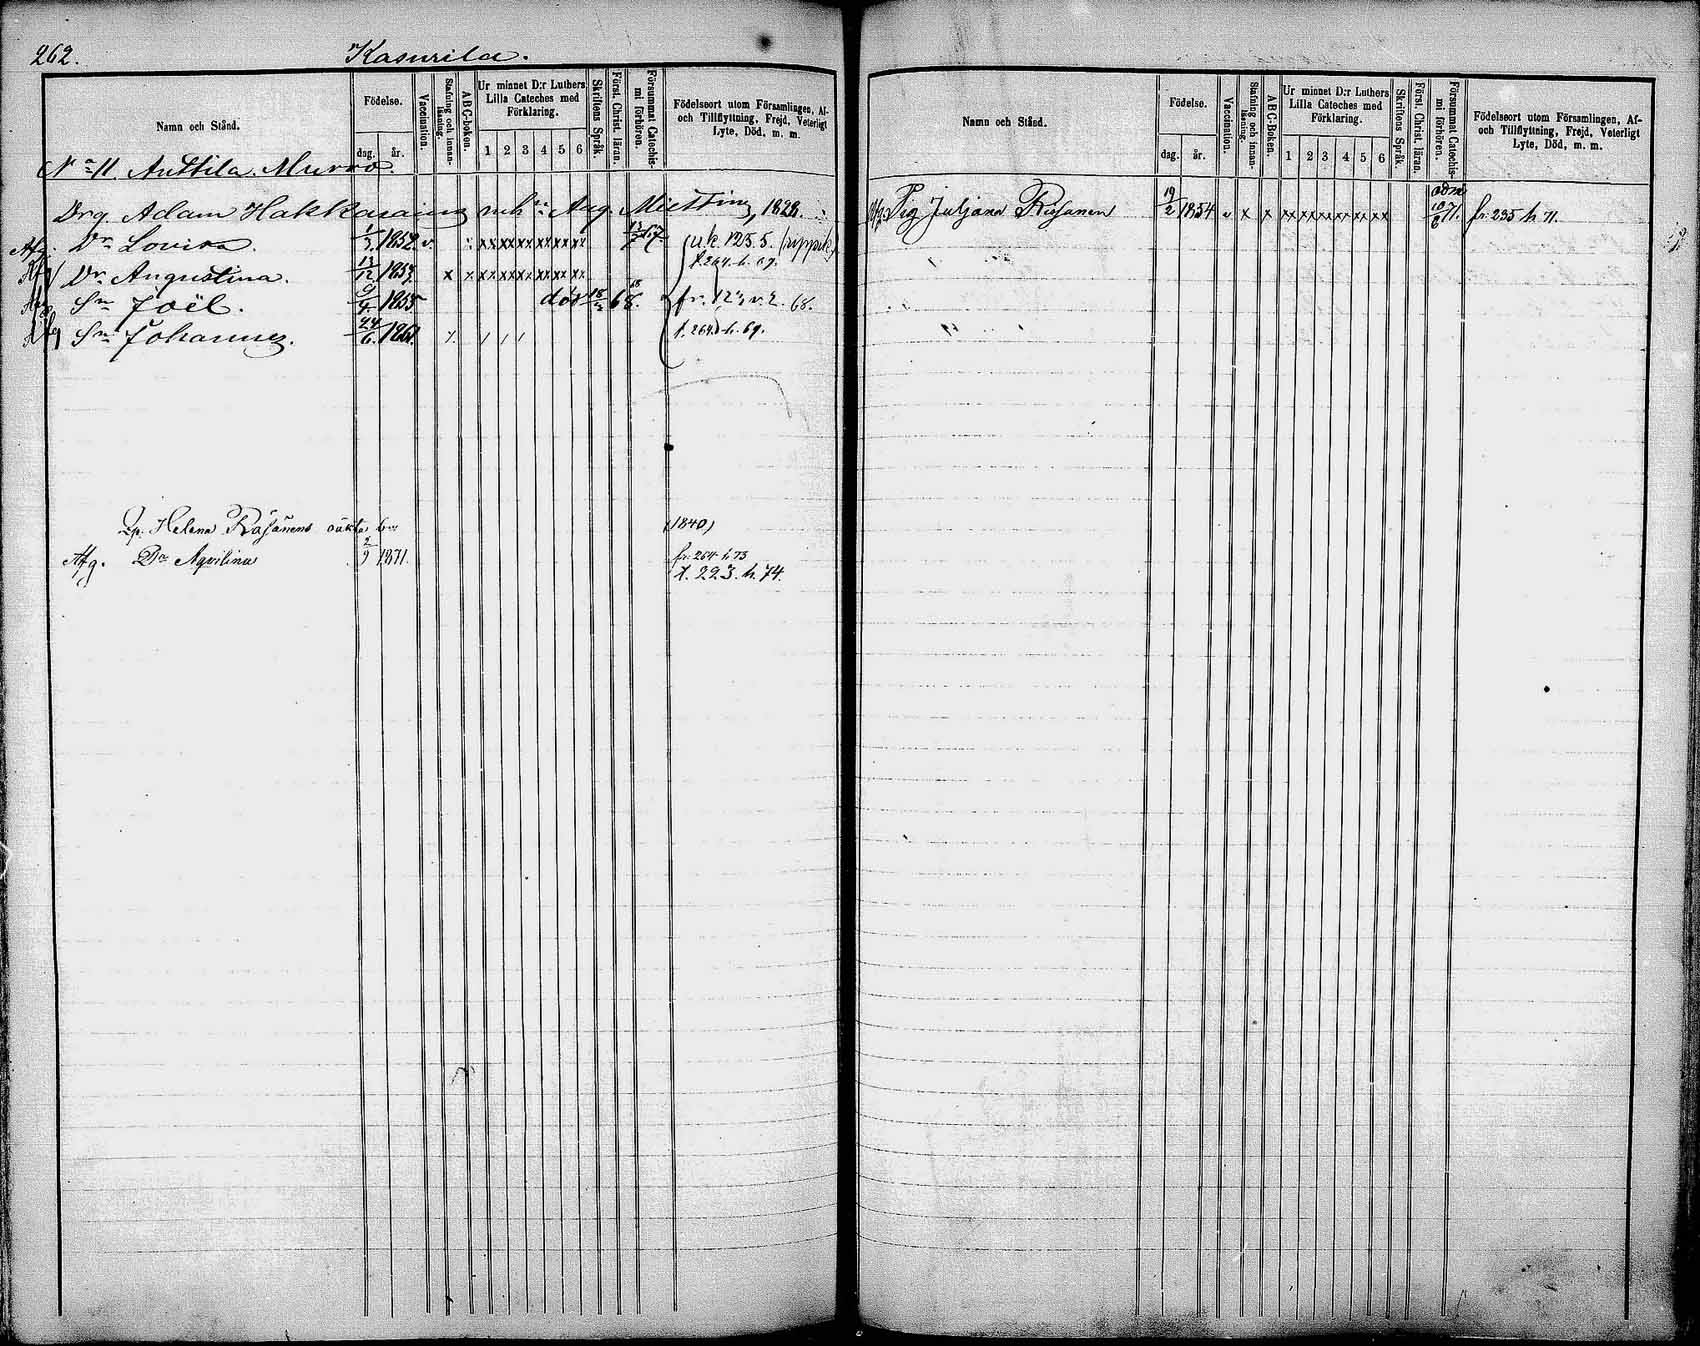 262. Kasurila.
Namn och Stånd.
Födelse.
dag. år.
Vaccination.
Stafning och innan-läsning.
ABC-boken.
Ur minnet D:r Luthers Lilla Cateches med Förklaring.
1 2 3 4 5 6
Skriftens Språk.
Först. Christ. läran.
Försummat Catechis-mi förhören.
Födelseort utom Församlingen, Af- och Tillflyttning, Frejd, Veterligt Lyte, Död, m. m.
No 11. Anttila. Murro.
Drg. Adam Hakkarainens enk:s Aug. Miettin, 1828.
Afg. Dr Lovisa. 1852 v. x xxxxxxxxxxxx 67
Dr Augustina. 13/12 1857. x x xxxxxxxxxxxx t. 264. h. 69.
Sn Joël. 1855 död 68. 68.
Sn Johannes. 24/6. 1861. t. 264. h. 69.
Helena Räsänens oäkta (1840)
Afg. Dr Aqvilina 2/9 1871. fr. 264 h. 73
t. 223. h. 74.
Namn och Stånd.
Födelse.
dag. år.
Vaccination.
Stafning och innan-läsning.
ABC-Boken.
Ur minnet D:r Luthers Lilla Cateches med Förklaring.
1 2 3 4 5 6
Skriftens Språk.
Först. Christ. läran.
Försummat Catechis-mi förhören.
Födelseort utom Församlingen, Af- och Tillflyttning, Frejd, Veterligt Lyte, Död, m. m.
Pig Juljana Räsänen 19/2 1854 v x x xxxxxxxxxxxx 71. fr. 235 h. 71.